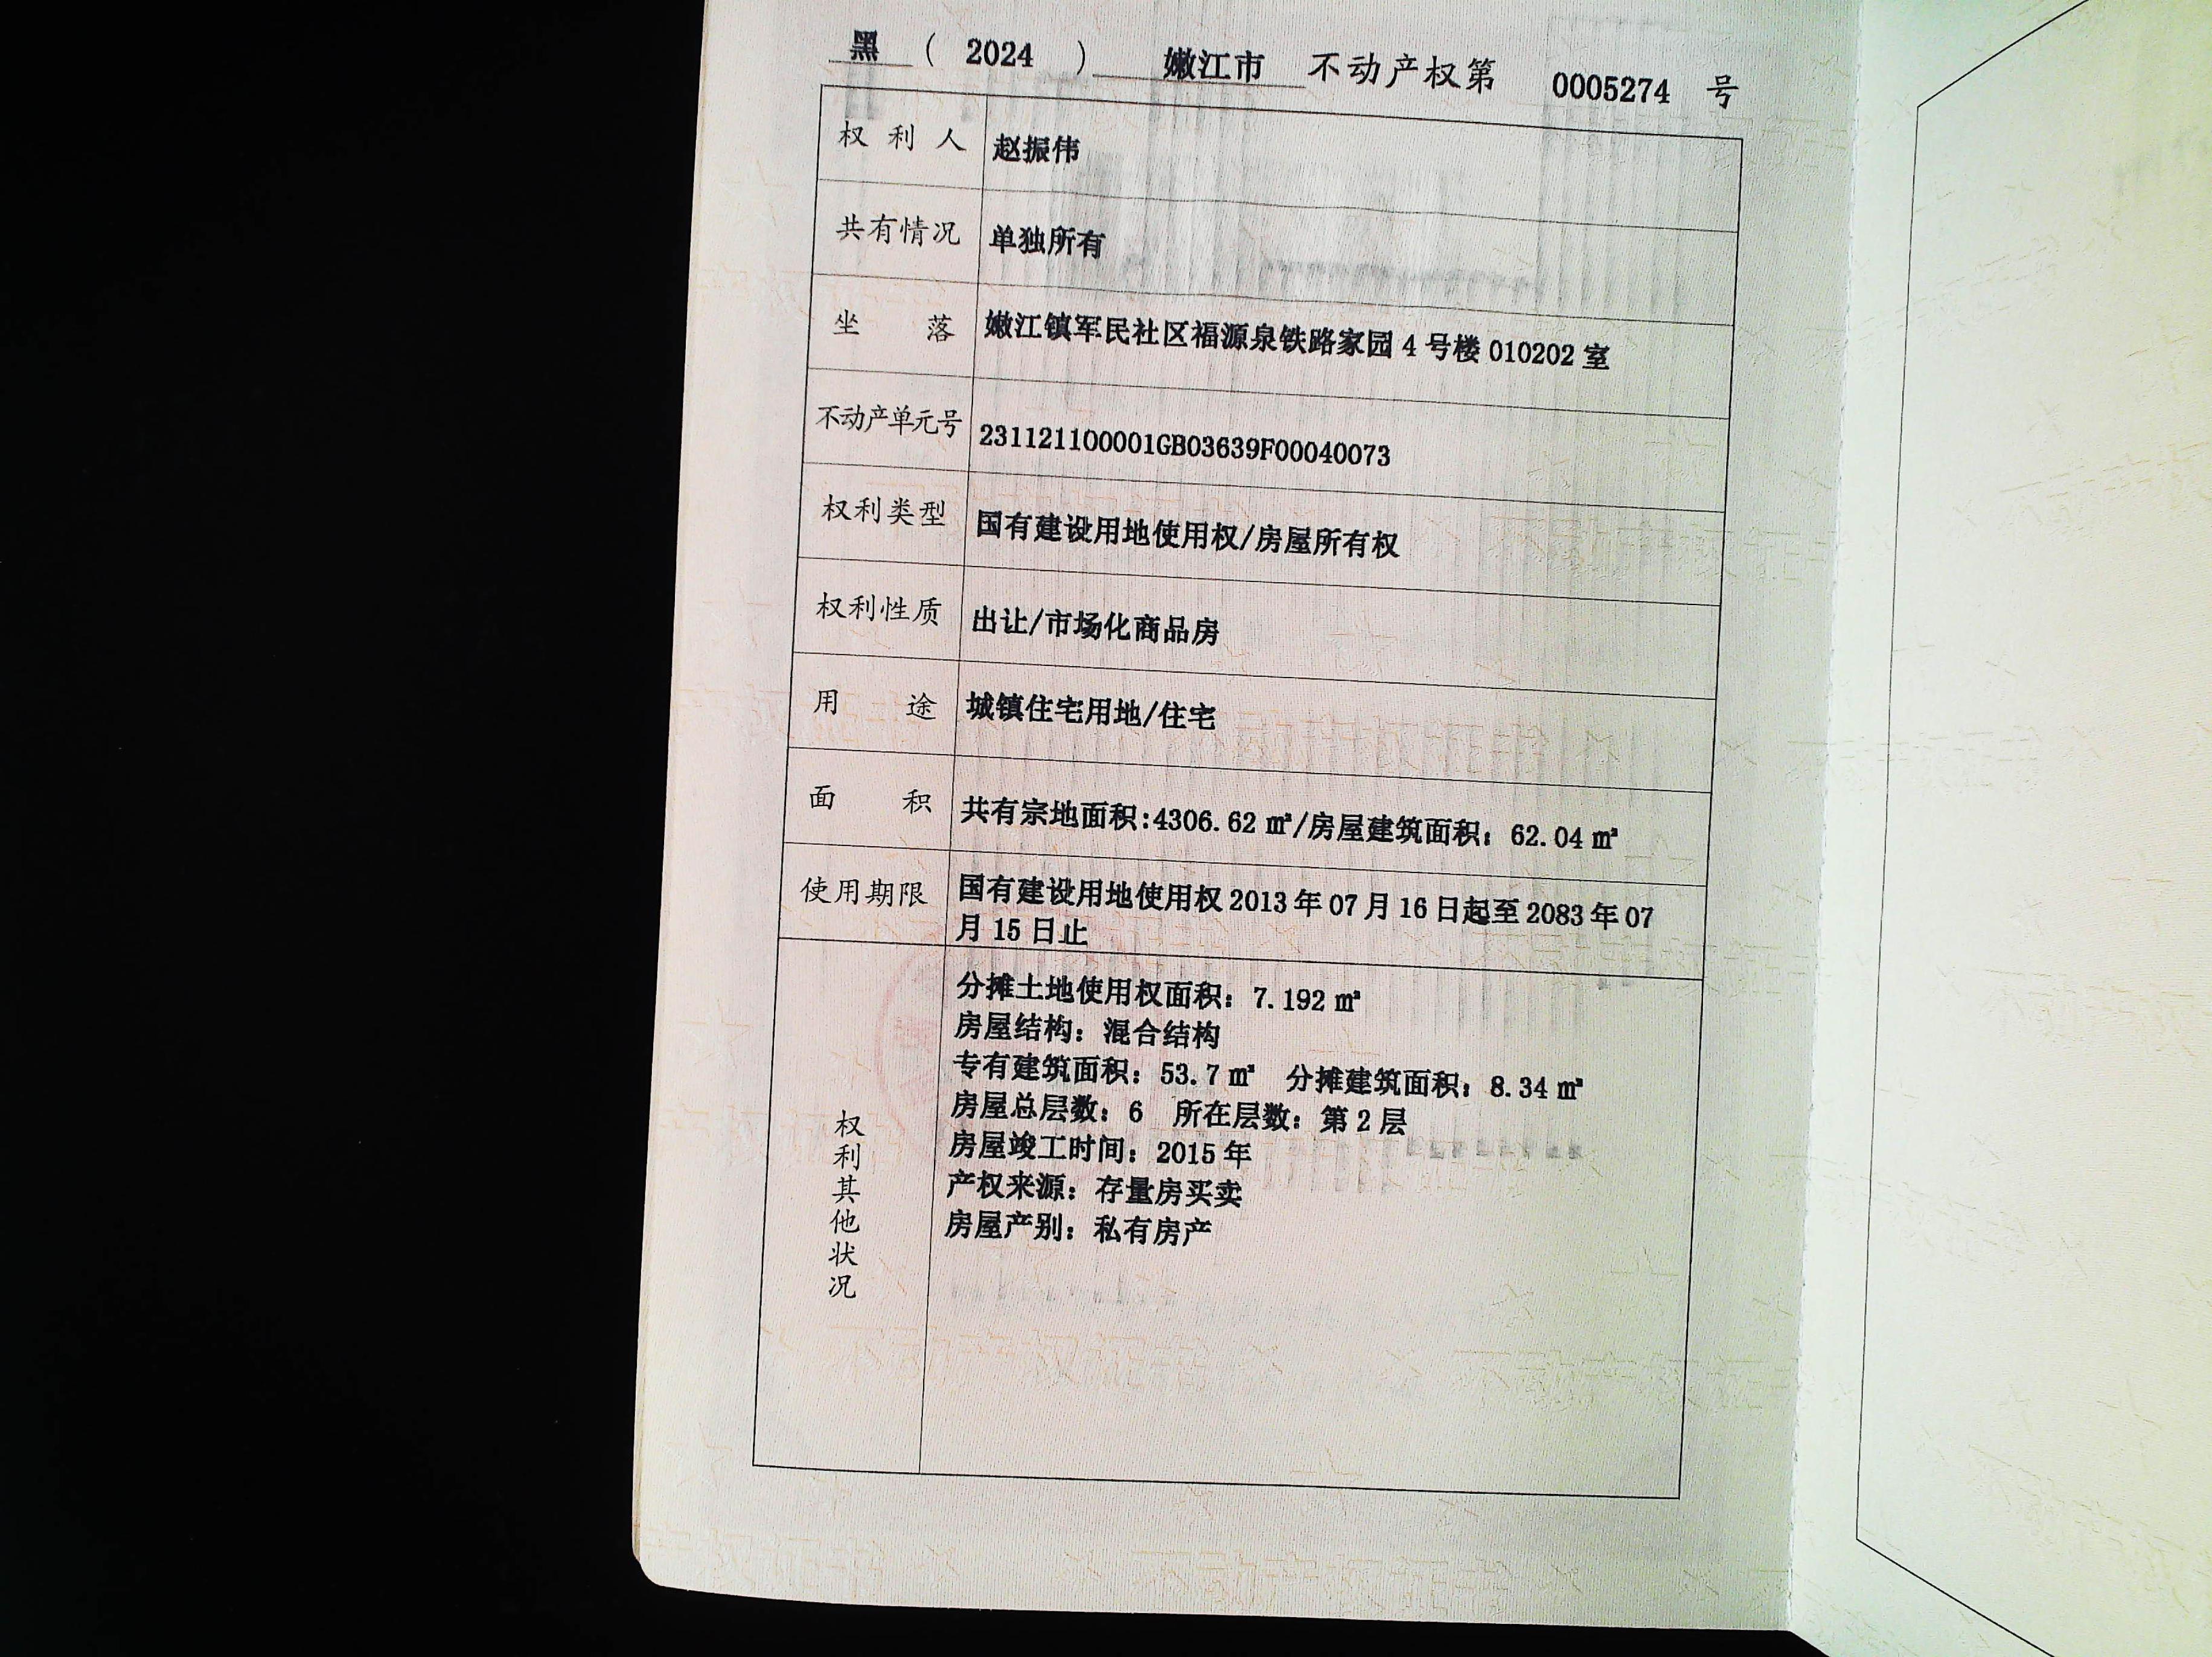 黑 ( 2024 ) 嫩江市 不动产权第 0005274 号
权利人 赵振伟
共有情况 单独所有
坐落 嫩江镇军民社区福源泉铁路家园 4 号楼 010202 室
不动产单元号 231121100001GB03639F00040073
权利类型 国有建设用地使用权/房屋所有权
权利性质 出让/市场化商品房
用途 城镇住宅用地/住宅
面积 共有宗地面积:4306.62 ㎡/房屋建筑面积：62.04 ㎡
使用期限 国有建设用地使用权 2013 年 07 月 16 日起至 2083 年 07
月 15 日止
权利其他状况
分摊土地使用权面积：7.192 ㎡
房屋结构：混合结构
专有建筑面积：53.7 ㎡ 分摊建筑面积：8.34 ㎡
房屋总层数：6 所在层数：第 2 层
房屋竣工时间：2015 年
产权来源：存量房买卖
房屋产别：私有房产